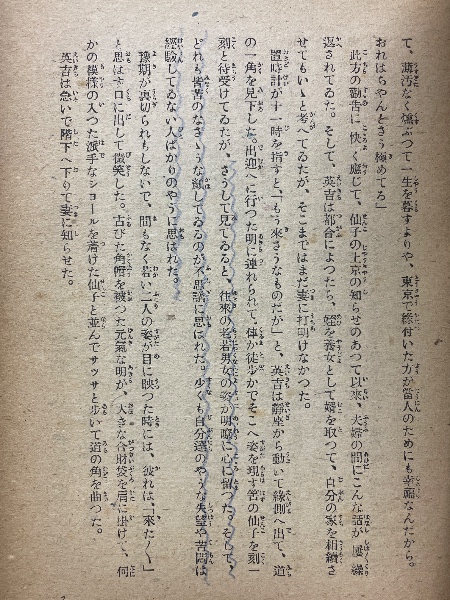 て、薄汚なく燻ぶつて一生を暮すよりや、東京で縁付いた方が當人のためにも幸福なんだから。
おれはちやんとさう極めてる」
此方の勸告に快く應じて、仙子の上京の知らせのあつて以來、夫婦の間にこんな話が屢々繰
返されてゐた。そして、英吉は都合によつたら、姪を養女として婿を取つて、自分の家を相續さ
せてもいゝと考へてゐたが、そこまではまだ妻に打明けなかつた。
置時計が十一時を指すと、「もう來さうなものだが」と、英吉は靜座から動いて緣側へ出て、道
の一角を見下した。出迎へに行つた明に連れられて、俥か徒歩かでそこへ姿を現す筈の仙子を刻一
刻と待受けてゐたが、さうして見てゐると、往來の老若男女の姿が明瞭に心に留つた。そして、
どれも皆苦のなさゝうな顔してゐるのが不思議に思はれた。少くも自分達のやうな失望や苦悶は
經驗してゐない人ばかりのやうに思はれた。
豫期が裏切られもしないで、間もなく若い二人の姿が目に映つた時には、彼れは、「來た〱」
と思はず口に出して微笑した。古びた角帽を被つた元氣な明が、大きな合財袋を肩に掛けて、何
かの模樣の入つた派手なショールを着けた仙子と並んでサッサと歩いて道の角を曲つた。
英吉は急いで階下へ下りて妻に知らせた。